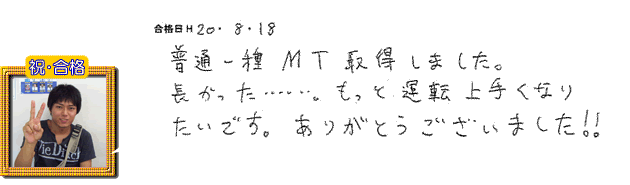 合格日 H 20・8・18
普通一種 MT 取得しました。
長かった……。もっと運転上手くなり
たいです。ありがとうございました!!
祝・合格